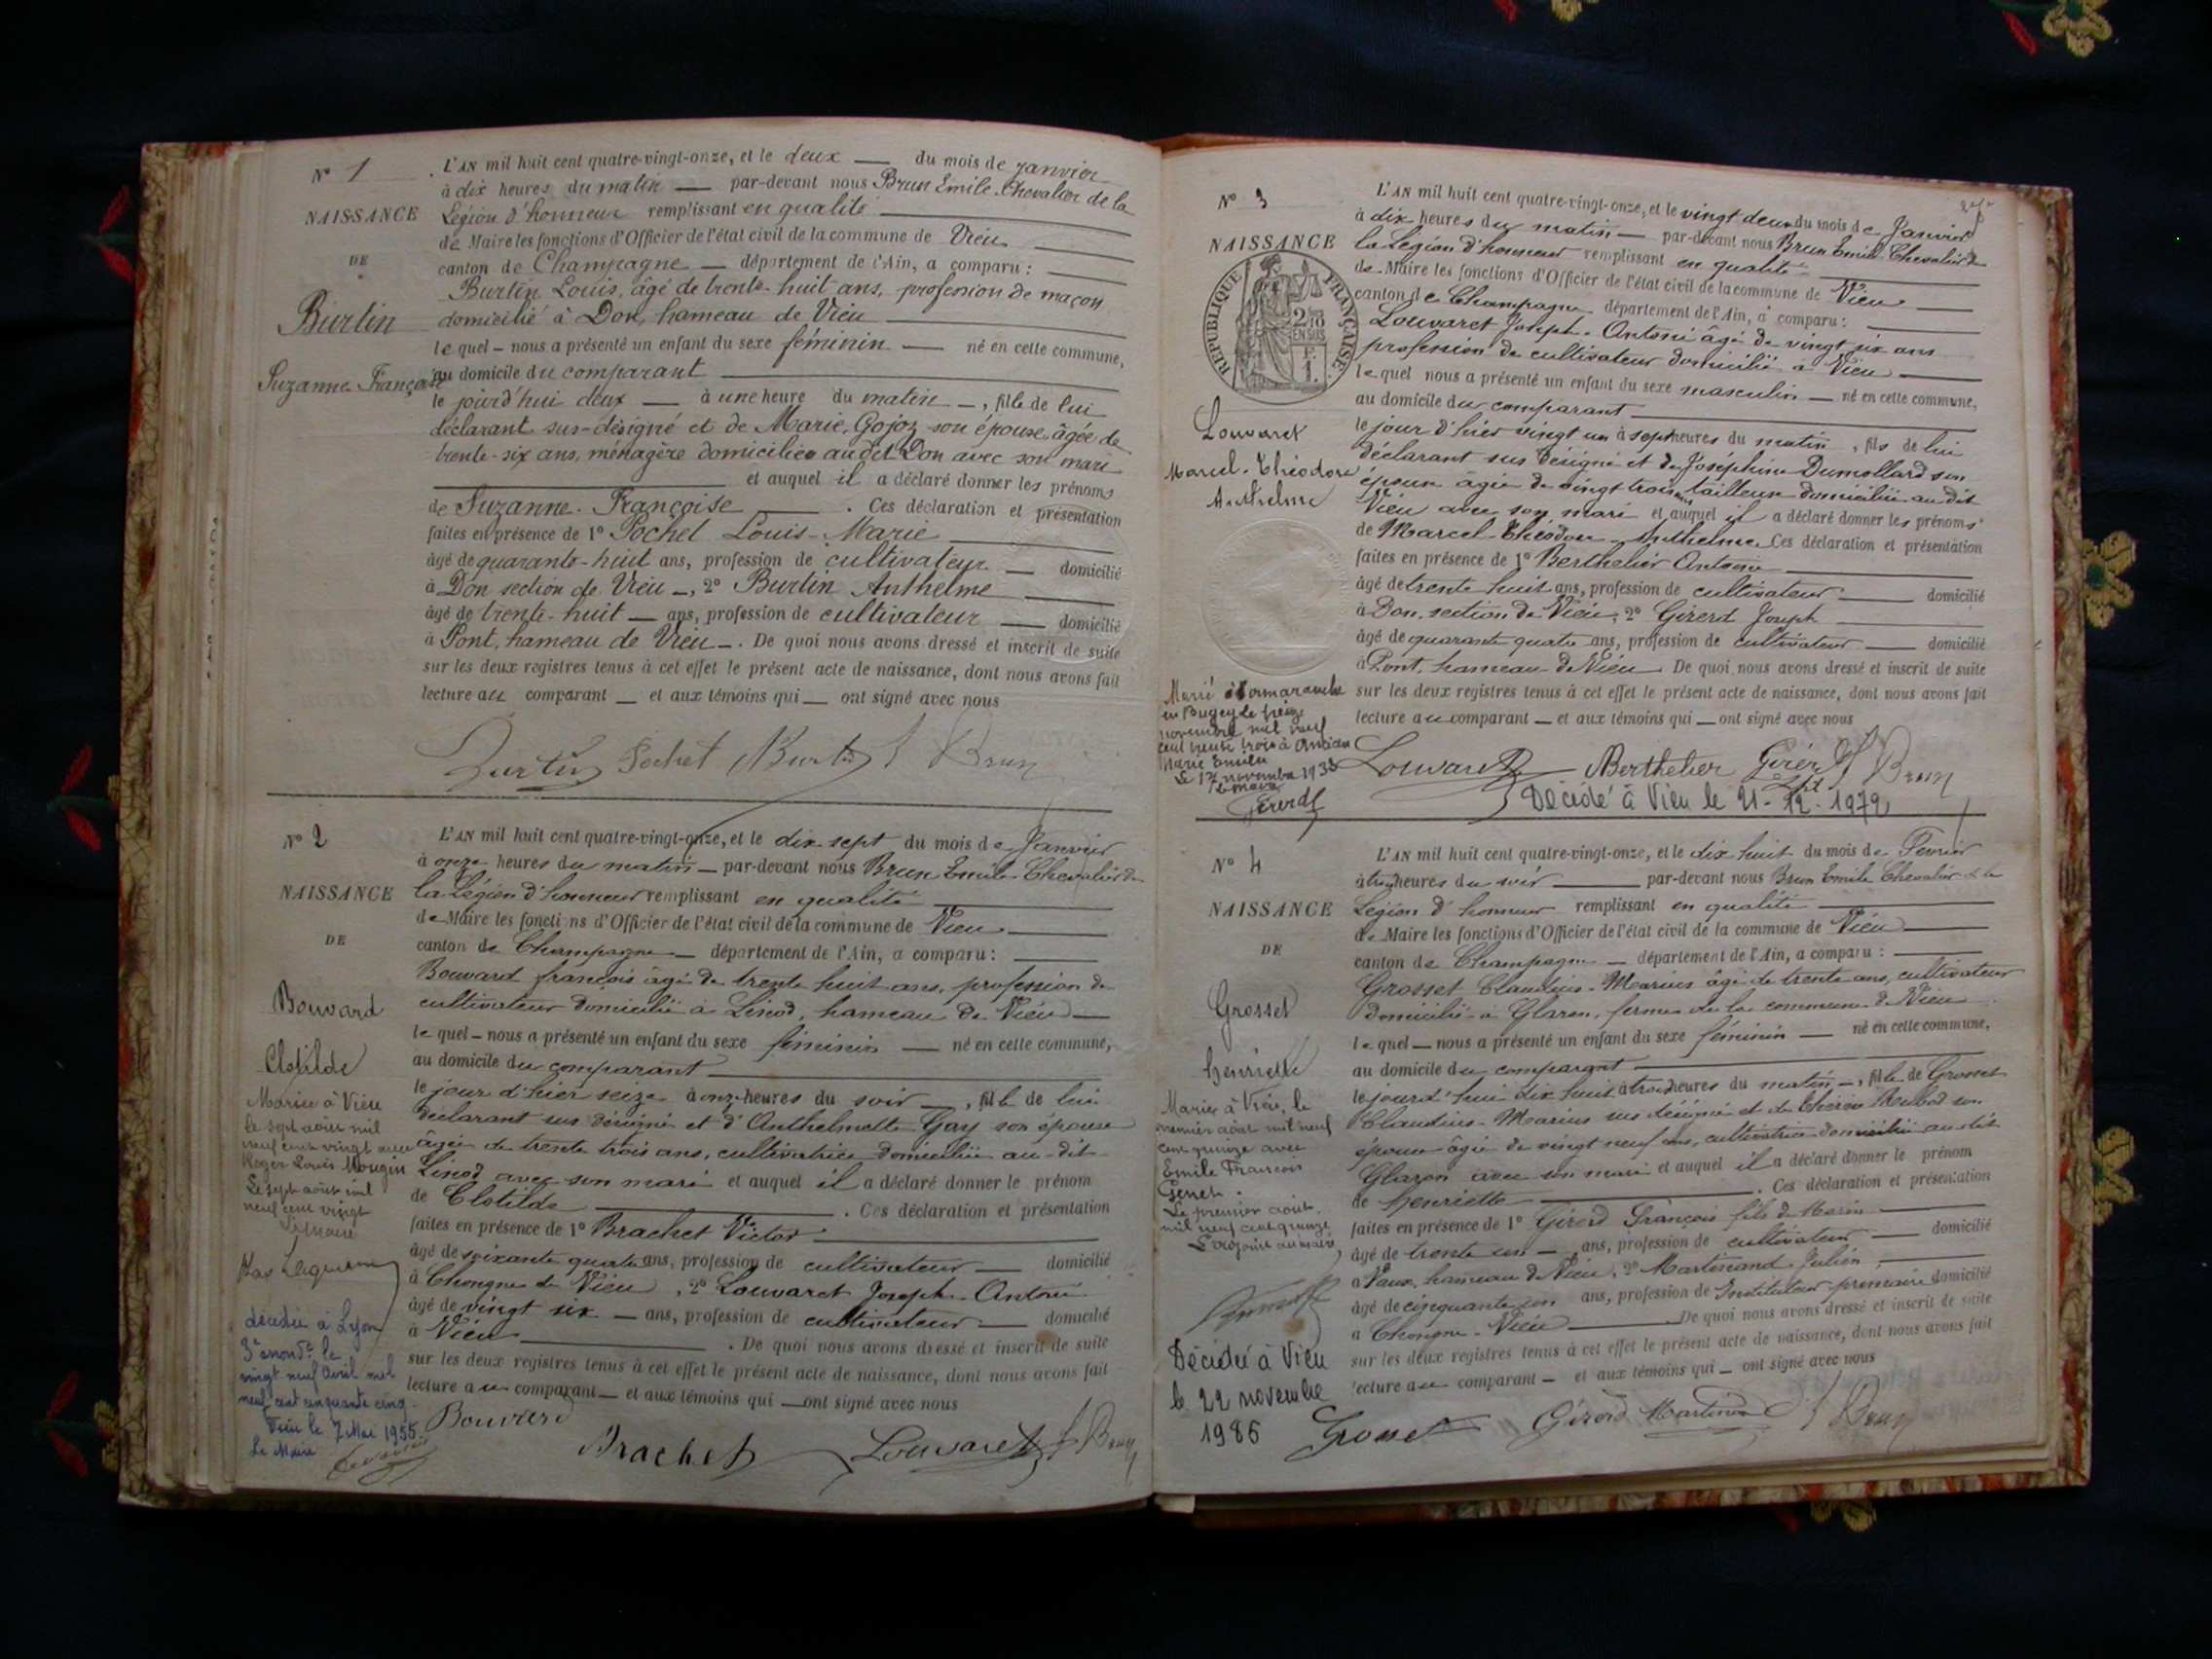 N° 1
NAISSANCE
DE
Burtin
Suzanne Françoise
L'AN mil huit cent quatre-vingt-onze, et le deux — du mois de Janvier
à dix heures du matin — par-devant nous Brun Emile Chevalier de la
Légion d'honneur remplissant en qualité
de Maire les fonctions d'Officier de l'état civil de la commune de Vieu
canton de Champagne — département de l'Ain, a comparu :
Burtin Louis, âgé de trente-huit ans, profession de maçon
domicilié à Don, hameau de Vieu
lequel — nous a présenté un enfant du sexe féminin — né en cette commune,
au domicile du comparant
le jourd'hui deux — à une heure du matin —, fille de lui
déclarant sus-désigné et de Marie Gojoz son épouse, âgée de
trente-six ans, ménagère domiciliée audit Don avec son mari
et auquel il a déclaré donner les prénoms
de Suzanne-Françoise . Ces déclaration et présentation
faites en présence de 1° Pochet Louis-Marie
âgé de quarante-huit ans, profession de cultivateur — domicilié
à Don section de Vieu —, 2° Burtin Anthelme
âgé de trente-huit — ans, profession de cultivateur — domicilié
à Pont, hameau de Vieu —. De quoi nous avons dressé et inscrit de suite
sur les deux registres tenus à cet effet le présent acte de naissance, dont nous avons fait
lecture au comparant — et aux témoins qui — ont signé avec nous
Burtin Pochet Burtin Brun
N° 2
NAISSANCE
DE
Bouvard
Clotilde
Mariée à Vieu
le sept août mil
neuf cent vingt avec
Roger Louis Mougin
Le sept août mil
neuf cent vingt
Le Maire
décédée à Lyon
3e arrondt le
vingt neuf avril mil
neuf cent cinquante cinq.
Vieu le 7 Mai 1955
Le Maire
L'AN mil huit cent quatre-vingt-onze, et le dix sept du mois de Janvier
à onze heures du matin — par-devant nous Brun Emile Chevalier de
la Légion d'honneur remplissant en qualité
de Maire les fonctions d'Officier de l'état civil de la commune de Vieu
canton de Champagne — département de l'Ain, a comparu :
Bouvard françois âgé de trente huit ans, profession de
cultivateur domicilié à Linod, hameau de Vieu —
lequel — nous a présenté un enfant du sexe féminin — né en cette commune,
au domicile du comparant
le jour d'hier seize à onze heures du soir —, fille de lui
déclarant sus désigné et d'Anthelmette Gay son épouse
âgée de trente trois ans, cultivatrice domiciliée au-dit
Linod avec son mari et auquel il a déclaré donner le prénom
de Clotilde . Ces déclaration et présentation
faites en présence de 1° Brachet Victor
âgé de soixante quatre ans, profession de cultivateur — domicilié
à Chongne de Vieu, 2° Louvaret Joseph-Antoine
âgé de vingt six — ans, profession de cultivateur — domicilié
à Vieu . De quoi nous avons dressé et inscrit de suite
sur les deux registres tenus à cet effet le présent acte de naissance, dont nous avons fait
lecture au comparant — et aux témoins qui — ont signé avec nous
Bouvard
Brachet Louvaret Brun
N° 3
NAISSANCE
RÉPUBLIQUE FRANÇAISE
2/10 EN SUS
1F.
Louvaret
Marcel-Théodore
Anthelme
Marié à Cormaranche
en Bugey le treize
novembre mil neuf
cent trente trois à
Marie Emilie
Le 17 novembre 1933
Le Maire
Girerd
L'AN mil huit cent quatre-vingt-onze, et le vingt deux du mois de Janvier
à dix heures du matin — par-devant nous Brun Emile Chevalier de
la Légion d'honneur remplissant en qualité
de Maire les fonctions d'Officier de l'état civil de la commune de Vieu
canton de Champagne département de l'Ain, a comparu :
Louvaret Joseph-Antoine âgé de vingt six ans
profession de cultivateur domicilié à Vieu
lequel nous a présenté un enfant du sexe masculin — né en cette commune,
au domicile du comparant
le jour d'hier vingt un à sept heures du matin, fils de lui
déclarant sus désigné et de Joséphine Dumollard son
épouse âgée de vingt trois ans, tailleuse domiciliée au dit
Vieu avec son mari et auquel il a déclaré donner les prénoms
de Marcel-Théodore-Anthelme. Ces déclaration et présentation
faites en présence de 1° Berthelier Antoine
âgé de trente huit ans, profession de cultivateur — domicilié
à Don, section de Vieu, 2° Girerd Joseph
âgé de quarante quatre ans, profession de cultivateur — domicilié
à Pont, hameau de Vieu De quoi nous avons dressé et inscrit de suite
sur les deux registres tenus à cet effet le présent acte de naissance, dont nous avons fait
lecture au comparant — et aux témoins qui — ont signé avec nous
Louvaret Berthelier Girerd Brun
Décédé à Vieu le 21-12-1972
N° 4
NAISSANCE
DE
Grosset
Henriette
Mariée à Vieu, le
premier août mil neuf
cent quinze avec
Emile François
Genet.
Le premier août
mil neuf cent quinze
Décédée à Vieu
le 22 novembre
1986
L'AN mil huit cent quatre-vingt-onze, et le dix huit du mois de Février
à trois heures du soir — par-devant nous Brun Emile Chevalier de la
Légion d'honneur remplissant en qualité
de Maire les fonctions d'Officier de l'état civil de la commune de Vieu
canton de Champagne — département de l'Ain, a comparu :
Grosset Claudius-Marius âgé de trente ans, cultivateur
domicilié à Glaron, ferme de la commune de Vieu
lequel — nous a présenté un enfant du sexe féminin — né en cette commune,
au domicile du comparant
le jourd'hui dix huit à trois heures du matin —, fille de Grosset
Claudius-Marius sus désigné et de son
épouse âgée de vingt neuf ans, cultivatrice domiciliée au dit
Glaron avec son mari et auquel il a déclaré donner le prénom
de Henriette . Ces déclaration et présentation
faites en présence de 1° Girerd François fils de Marin
âgé de trente un — ans, profession de cultivateur — domicilié
à Vaux, hameau de Vieu, 2° Martinand Julien
âgé de cinquante un ans, profession de Instituteur primaire domicilié
à Chongne-Vieu De quoi nous avons dressé et inscrit de suite
sur les deux registres tenus à cet effet le présent acte de naissance, dont nous avons fait
lecture au comparant — et aux témoins qui — ont signé avec nous
Grosset Girerd Martinand Brun